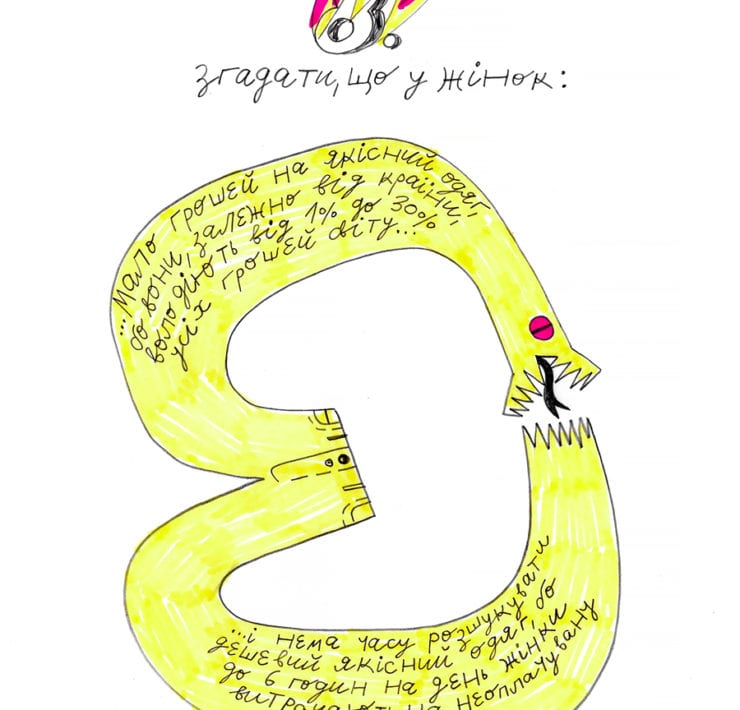 8.
згадати, що у жінок:
...мало грошей на якісний одяг,
бо вони, залежно від країни,
володіють від 1% до 30%
усіх грошей світу...
...і нема часу розшукувати
дешевий якісний одяг, бо
до 6 годин на день жінки
витрачають на неоплачувану